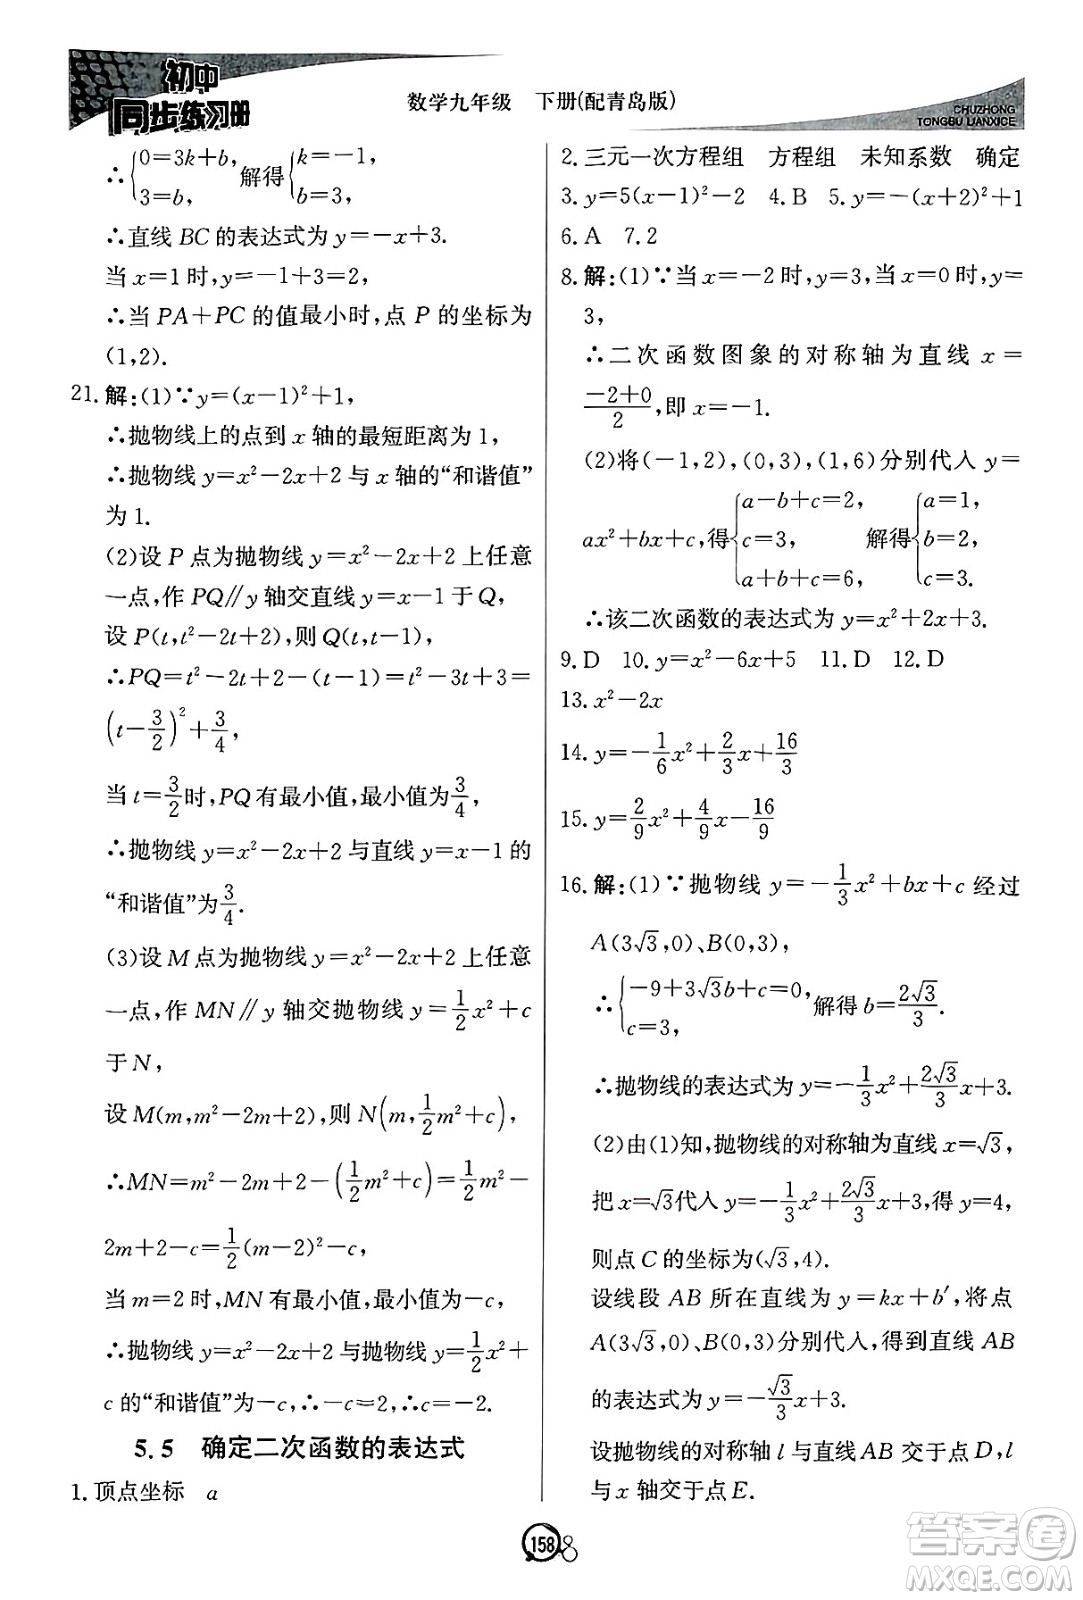 初中
同步练习册
数学九年级 下册(配青岛版)
CHUZHONG
TONGBU LIANXICE
∴{0=3k+b, 3=b, 解得{k=-1, b=3,
∴直线 BC 的表达式为 y=-x+3.
当 x=1 时,y=-1+3=2,
∴当 PA+PC 的值最小时,点 P 的坐标为
(1,2).
21. 解:(1)∵y=(x-1)²+1,
∴抛物线上的点到 x 轴的最短距离为 1,
∴抛物线 y=x²-2x+2 与 x 轴的“和谐值”
为 1.
(2)设 P 点为抛物线 y=x²-2x+2 上任意
一点,作 PQ∥y 轴交直线 y=x-1 于 Q,
设 P(t,t²-2t+2),则 Q(t,t-1),
∴PQ=t²-2t+2-(t-1)=t²-3t+3=
(t-3/2)²+3/4,
当 t=3/2时,PQ 有最小值,最小值为3/4,
∴抛物线 y=x²-2x+2 与直线 y=x-1 的
“和谐值”为3/4.
(3)设 M 点为抛物线 y=x²-2x+2 上任意
一点,作 MN∥y 轴交抛物线 y=1/2x²+c
于 N,
设 M(m,m²-2m+2),则 N(m,1/2m²+c),
∴MN=m²-2m+2-(1/2m²+c)=1/2m²-
2m+2-c=1/2(m-2)²-c,
当 m=2 时,MN 有最小值,最小值为-c,
∴抛物线 y=x²-2x+2 与抛物线 y=1/2x²+
c 的“和谐值”为-c,∴-c=2,∴c=-2.
5.5 确定二次函数的表达式
1. 顶点坐标 a
2. 三元一次方程组 方程组 未知系数 确定
3. y=5(x-1)²-2 4. B 5. y=-(x+2)²+1
6. A 7. 2
8. 解:(1)∵当 x=-2 时,y=3,当 x=0 时,y=
3,
∴二次函数图象的对称轴为直线 x=
(-2+0)/2,即 x=-1.
(2)将(-1,2),(0,3),(1,6)分别代入 y=
ax²+bx+c,得{a-b+c=2, c=3, a+b+c=6, 解得{a=1, b=2, c=3.
∴该二次函数的表达式为 y=x²+2x+3.
9. D 10. y=x²-6x+5 11. D 12. D
13. x²-2x
14. y=-1/6x²+2/3x+16/3
15. y=2/9x²+4/9x-16/9
16. 解:(1)∵抛物线 y=-1/3x²+bx+c 经过
A(3√3,0)、B(0,3),
∴{-9+3√3b+c=0, c=3, 解得 b=2√3/3.
∴抛物线的表达式为 y=-1/3x²+2√3/3x+3.
(2)由(1)知,抛物线的对称轴为直线 x=√3,
把 x=√3代入 y=-1/3x²+2√3/3x+3,得 y=4,
则点 C 的坐标为(√3,4).
设线段 AB 所在直线为 y=kx+b′,将点
A(3√3,0)、B(0,3)分别代入,得到直线 AB
的表达式为 y=-√3/3x+3.
设抛物线的对称轴 l 与直线 AB 交于点 D,l
与 x 轴交于点 E.
158
答案圈
MXQE.COM